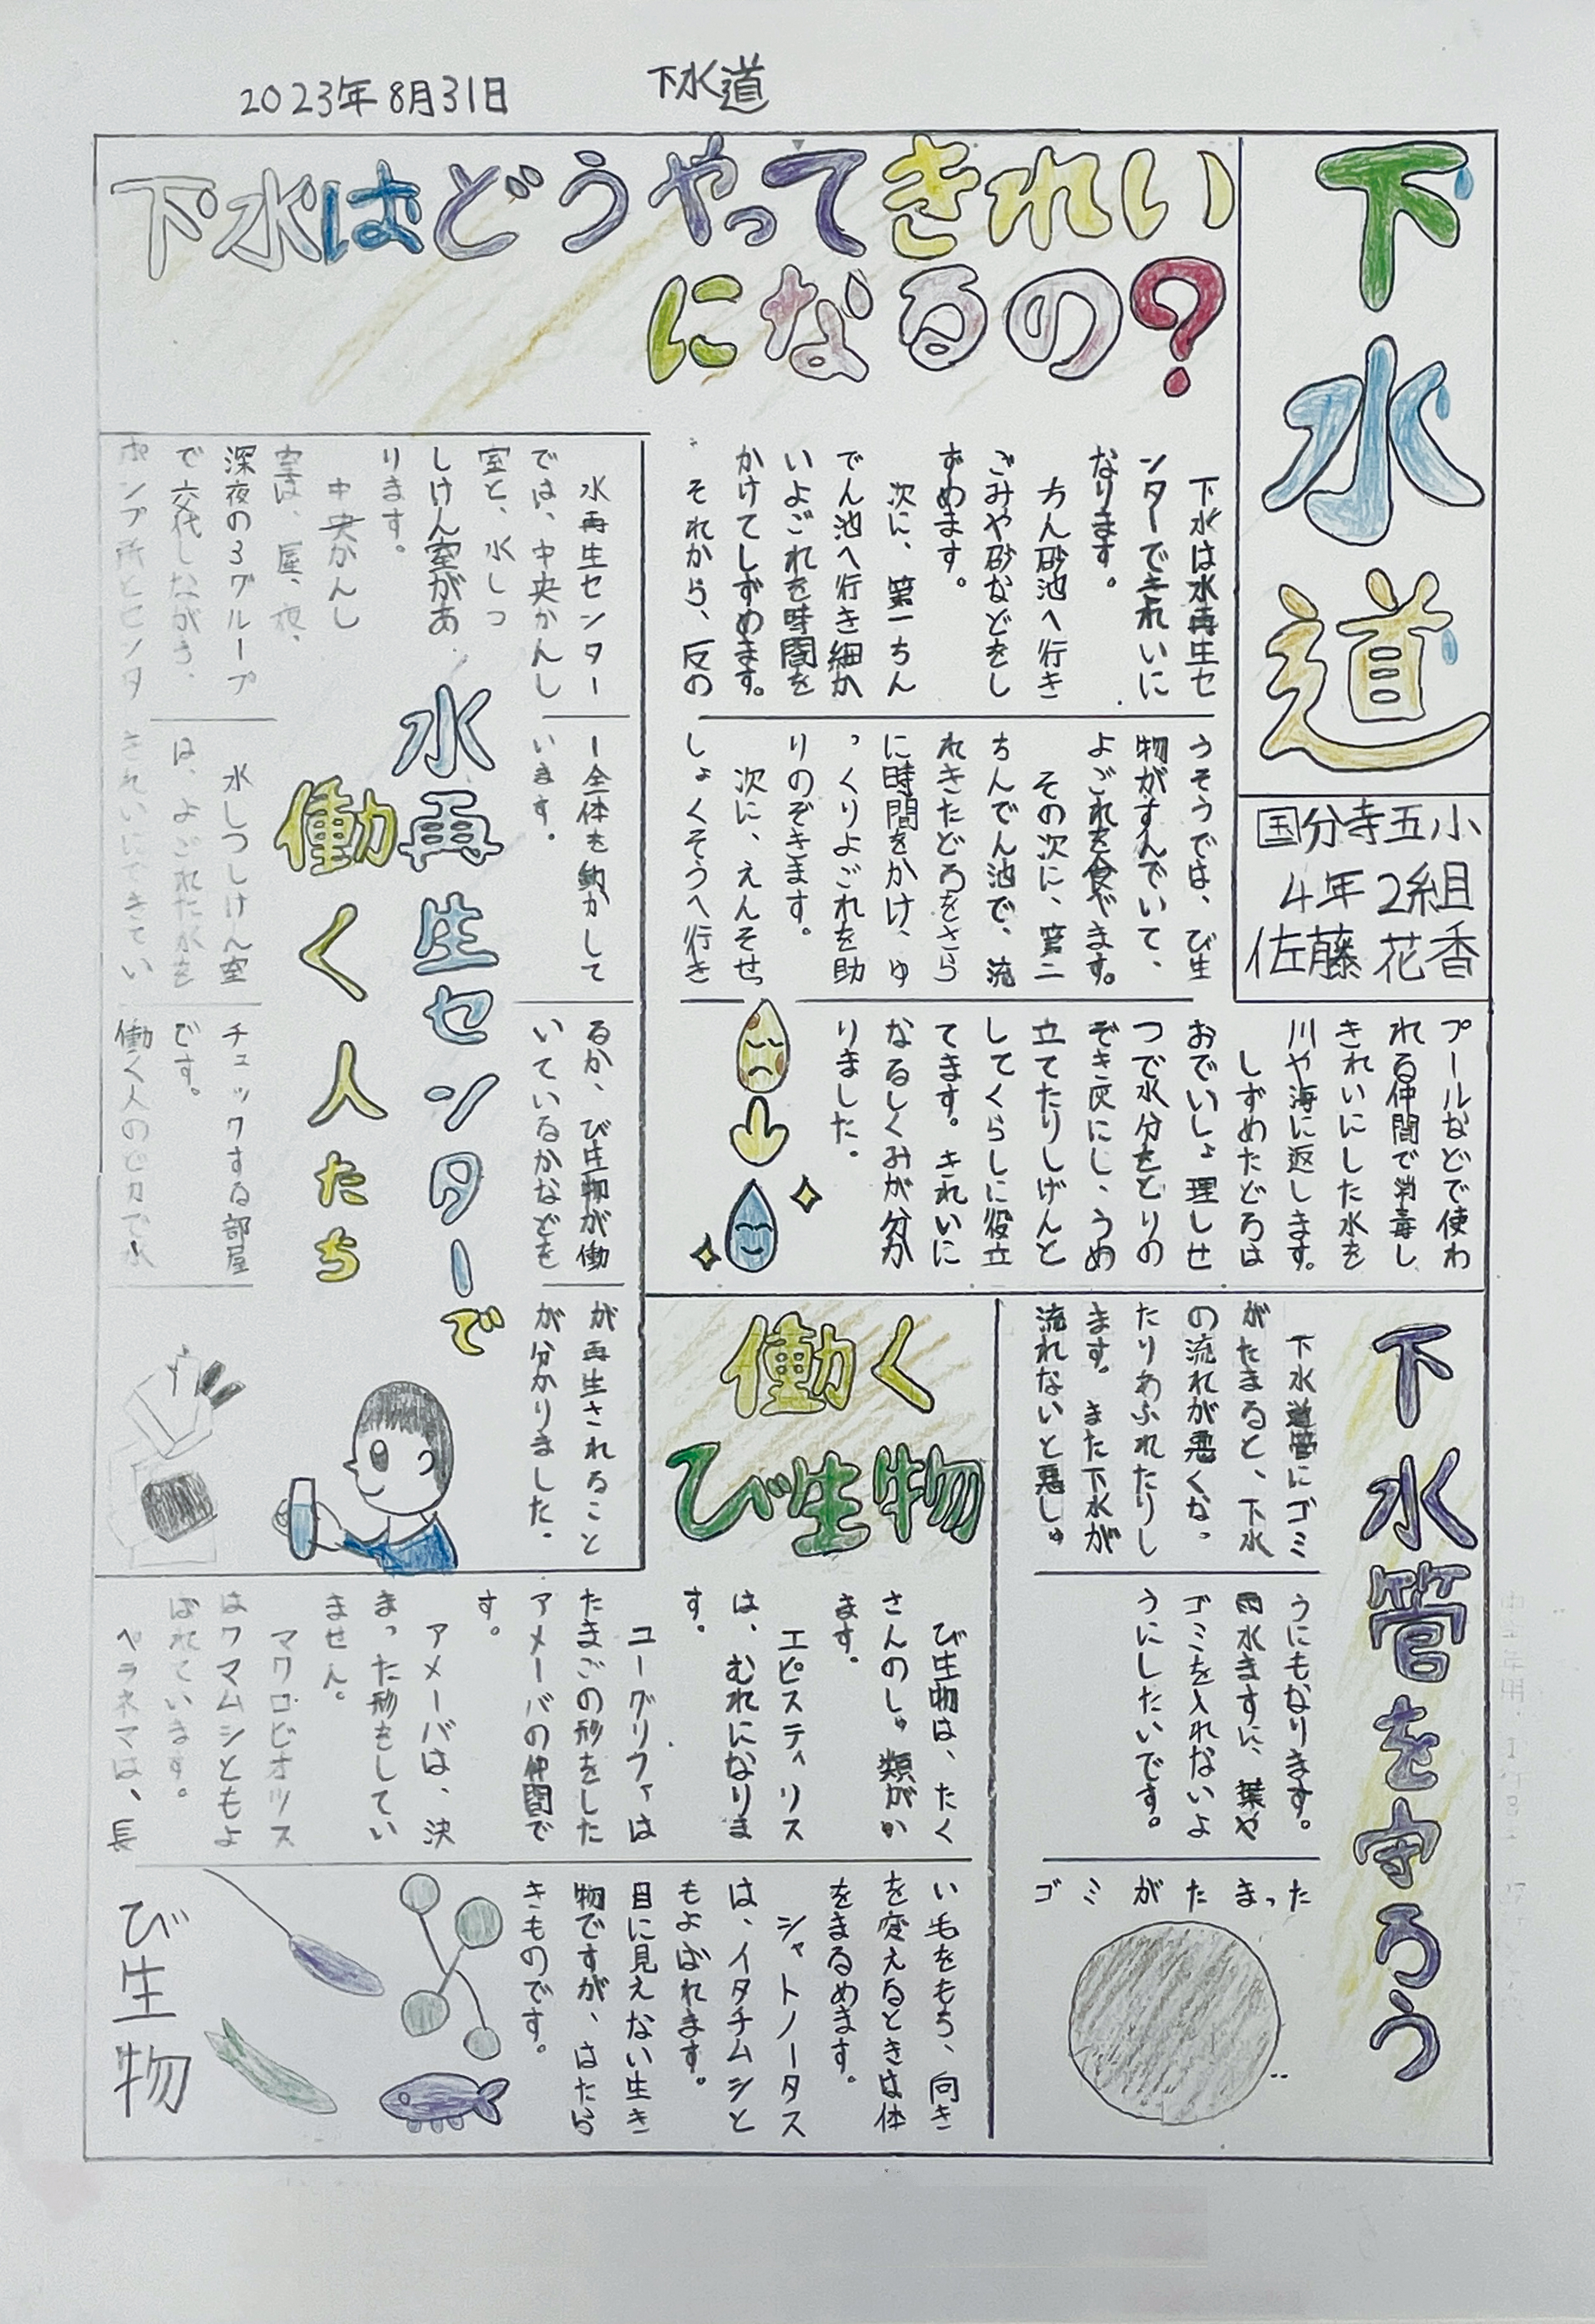 2023年8月31日
下水道
下水道
国分寺五小
4年2組
佐藤花香
下水はどうやってきれい
になるの?
下水は水再生セ
ンターできれいに
なります。
ちん砂池へ行き
ごみや砂などをし
ずめます。
次に、第一ちん
でん池へ行き細か
いよごれを時間を
かけてしずめます。
それから、反の
うそうでは、び生
物がすんでいて、
よごれを食べます。
その次に、第二
ちんでん池で、流
れきたどろをさら
に時間をかけ、ゆ
っくりよごれを助
りのぞきます。
次に、えんそせっ
しょくそうへ行き
プールなどで使わ
れる仲間で消毒し
きれいにした水を
川や海に返します。
しずめたどろは
おでいしょ理しせ
つで水分をとりの
ぞき灰にし、うめ
立てたりしげんと
してくらしに役立
てます。きれいに
なるしくみが分か
りました。
水再生センターで
働く人たち
水再生センター
では、中央かんし
室と、水しつ
しけん室があ
ります。
中央かんし
室は、昼、夜、
深夜の3グループ
で交代しながら、
ポンプ所とセンタ
ー全体を動かして
います。
水しつしけん室
は、よごれた水を
きれいにできてい
るか、び生物が働
いているかなどを
チェックする部屋
です。
働く人のど力で水
が再生されること
が分かりました。
下水管を守ろう
下水道管にゴミ
がたまると、下水
の流れが悪くなっ
たりあふれたりし
ます。また下水が
流れないと悪しゅ
うにもなります。
雨水ますに、葉や
ゴミを入れないよ
うにしたいです。
ゴミがたまった
働く
び生物
び生物は、たく
さんのしゅ類がい
ます。
エピスティリス
は、むれになりま
す。
ユーグリファは
たまごの形をした
アメーバの仲間で
す。
アメーバは、決
まった形をしてい
ません。
マクロビオツス
はクマムシともよ
ばれています。
ペラネマは、長
い毛をもち、向き
を変えるときは体
をまるめます。
シャトノータス
は、イタチムシと
もよばれます。
目に見えない生き
物ですが、はたら
きものです。
び生物